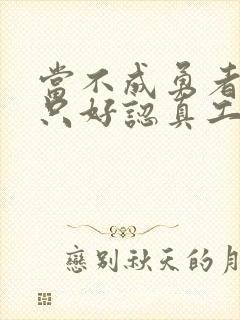 當不成勇者
只好認真工
戀別秋天的